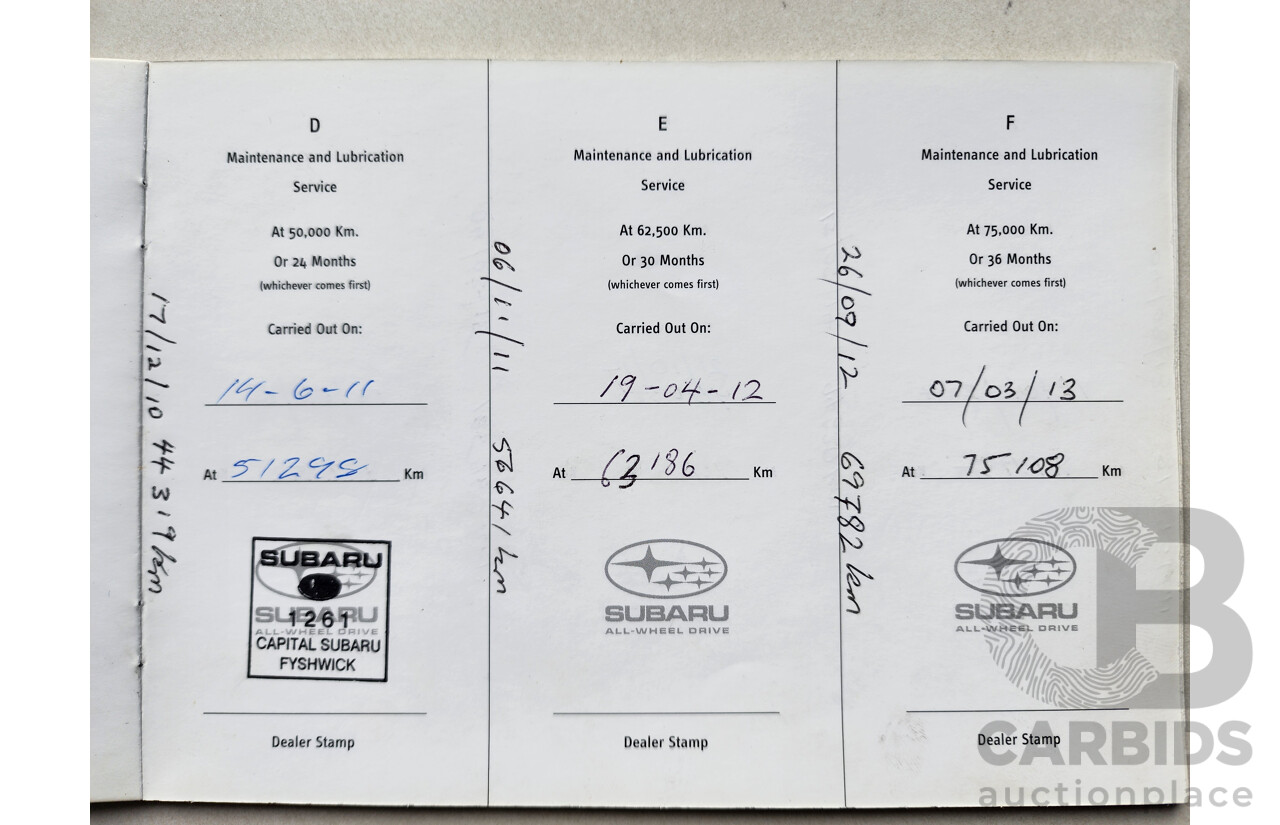 D
Maintenance and Lubrication
Service
At 50,000 Km.
Or 24 Months
(whichever comes first)
Carried Out On:
14-6-11
At 51298 Km
SUBARU
1261
SUBARU
ALL-WHEEL DRIVE
CAPITAL SUBARU
FYSHWICK
Dealer Stamp
17/12/10 44319km
E
Maintenance and Lubrication
Service
At 62,500 Km.
Or 30 Months
(whichever comes first)
Carried Out On:
19-04-12
At 63186 Km
SUBARU
ALL-WHEEL DRIVE
Dealer Stamp
06/11/11 56641km
F
Maintenance and Lubrication
Service
At 75,000 Km.
Or 36 Months
(whichever comes first)
Carried Out On:
07/03/13
At 75108 Km
SUBARU
ALL-WHEEL DRIVE
Dealer Stamp
26/09/12 69782km
CARBIDS
auctionplace